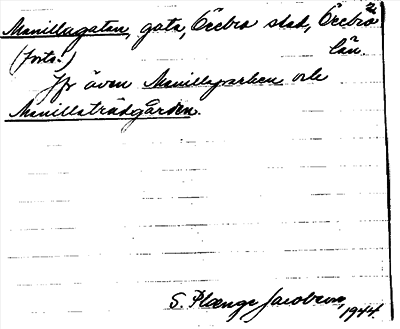 Manillagatan, gata, Örebro stad, Örebro
(forts.) län.
Jfr även Manillaparken och
Manillaträdgården.
S. Plænge Jacobson,
1944.